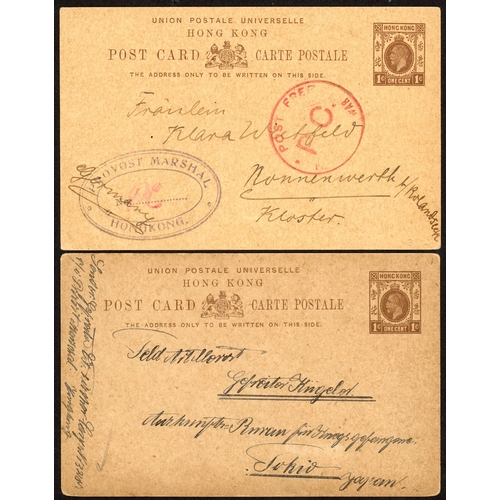 UNION POSTALE UNIVERSELLE
HONG KONG
POST CARD CARTE POSTALE
THE ADDRESS ONLY TO BE WRITTEN ON THIS SIDE.
HONG KONG
1c ONE CENT 1c
Fräulein
Klara Westfeld
Nonnenwerth b/Rolandseck
Kloster
Germany
POST FREE
P.C.
WAR
PROVOST MARSHAL
HONGKONG.
UNION POSTALE UNIVERSELLE
HONG KONG
POST CARD CARTE POSTALE
THE ADDRESS ONLY TO BE WRITTEN ON THIS SIDE.
HONG KONG
1c ONE CENT 1c
Feld Artillerist
Gefreiter Kügeler
Auskunfts Bureau für Kriegsgefangene
Tokio
Japan
Sender
c/o Provost Marshal Hongkong